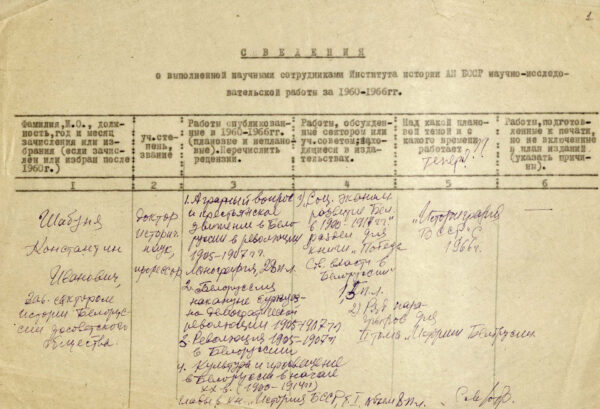 1
СВЕДЕНИЯ
о выполненной научными сотрудниками Института истории АН БССР научно-исследо-
вательской работы за 1960-1966гг.
Фамилия,И.О., долж-
ность, год и месяц
зачисления или из-
брания (если зачис-
лен или избран после
1960г.)
уч.сте-
пень,
звание
Работы опубликован-
ные в 1960-1966гг.
(плановые и неплано-
вые). Перечислить
рецензии.
Работы, обсужден
ные сектором или
уч.советом; нахо-
дящиеся в изда-
тельствах.
Над какой плано-
вой темой и с
какого времени
работает
Работы, подготов-
ленные к печати,
но не включенные
в план издания
(указать причи-
ны).
1
2
3
4
5
6
Шабуня
Константин
Иванович,
Зав. сектором
истории Белорус-
сии досоветского
общества.
доктор
историч.
наук,
профессор
1. Аграрный вопрос
и крестьянское
движение в Бело-
руссии в революции
1905-1907гг.
Монография,
2. Белоруссия
накануне буржуаз-
но-демократической
революции 1905-1907гг
3. Революция 1905-1907гг
в Белоруссии
4. Культура и просвещение
в Белоруссии в начале
XX в. (1900-1914гг)
главы в кн. "История БССР, т. I,
1) Соц. эконом.
развитие Бел.
в 1900-1917гг."
раздел для
книги "Победа
Сов. власти в
Белоруссии"
2) Ряд пара-
графов для
тома "Истории Белоруссии
"Историография
БССР" с
196
—